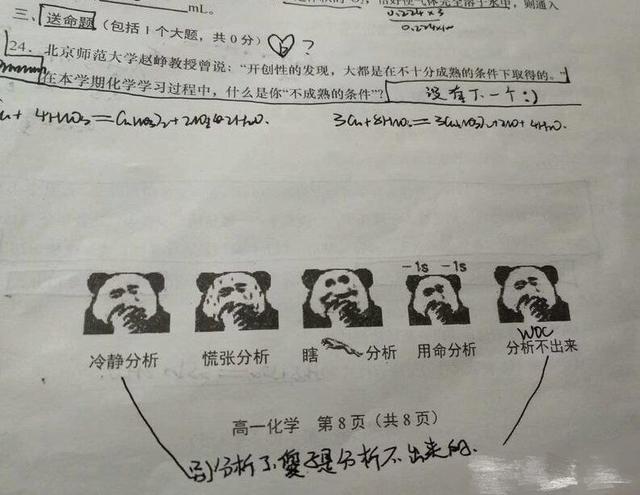 mL。
0.224×3
三、送命题（包括1个大题，共0分）？
24．北京师范大学赵峥教授曾说：“开创性的发现，大都是在不十分成熟的条件下取得的。”
在本学期化学学习过程中，什么是你“不成熟的条件”？ 没有下一个:)
3Cu+8HNO₃=3Cu(NO₃)₂+2NO+4H₂O.
-1s -1s
WOC
冷静分析 慌张分析 瞎 分析 用命分析 分析不出来
高一化学 第8页（共8页）
别分析了 傻子是分析不出来的.